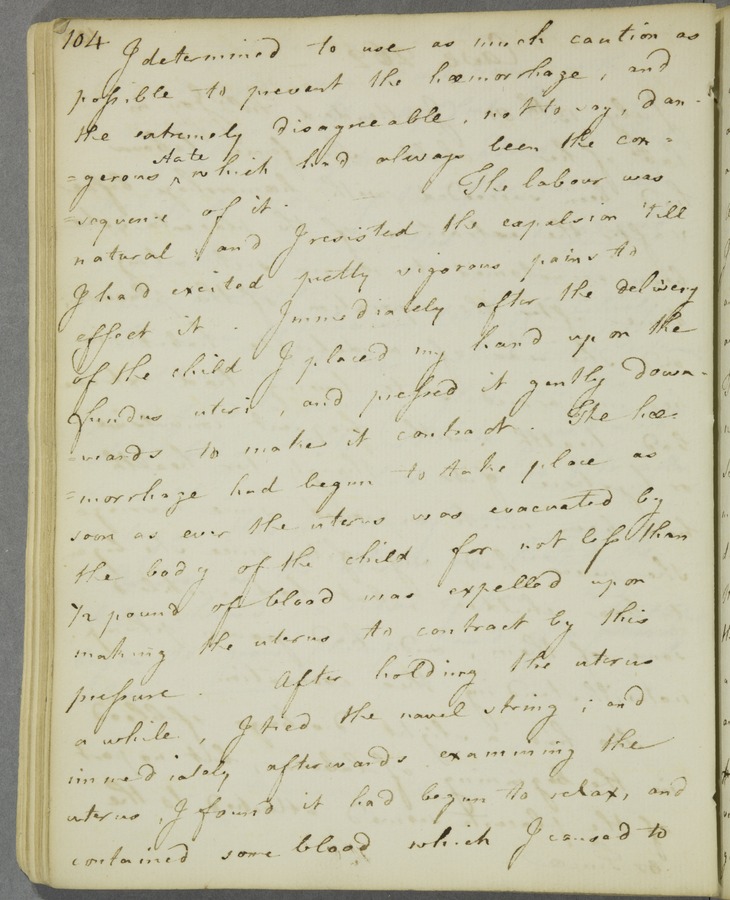 104
I determined to use as much caution as
possible to prevent the hæmorrhage, and
the extremely disagreeable, not to say, dan-
=gerous ^state which had always been the con-
=sequence of it. The labour was
natural, and I resisted the expulsion 'till
I had excited pretty vigorous pains to
effect it. Immediately after the delivery
of the child I placed my hand upon the
fundus uteri, and pressed it gently down-
=wards to make it contract. The hæ-
=morrhage had begun to take place as
soon as ever the uterus was evacuated by
the body of the child, for not less than
½ pound of blood was expelled upon
making the uterus to contract by this
pressure. After holding the uterus
a while, I tied the navel string; and
immediately afterwards examining the
uterus, I found it had begun to relax, and
contained some blood which I caused to